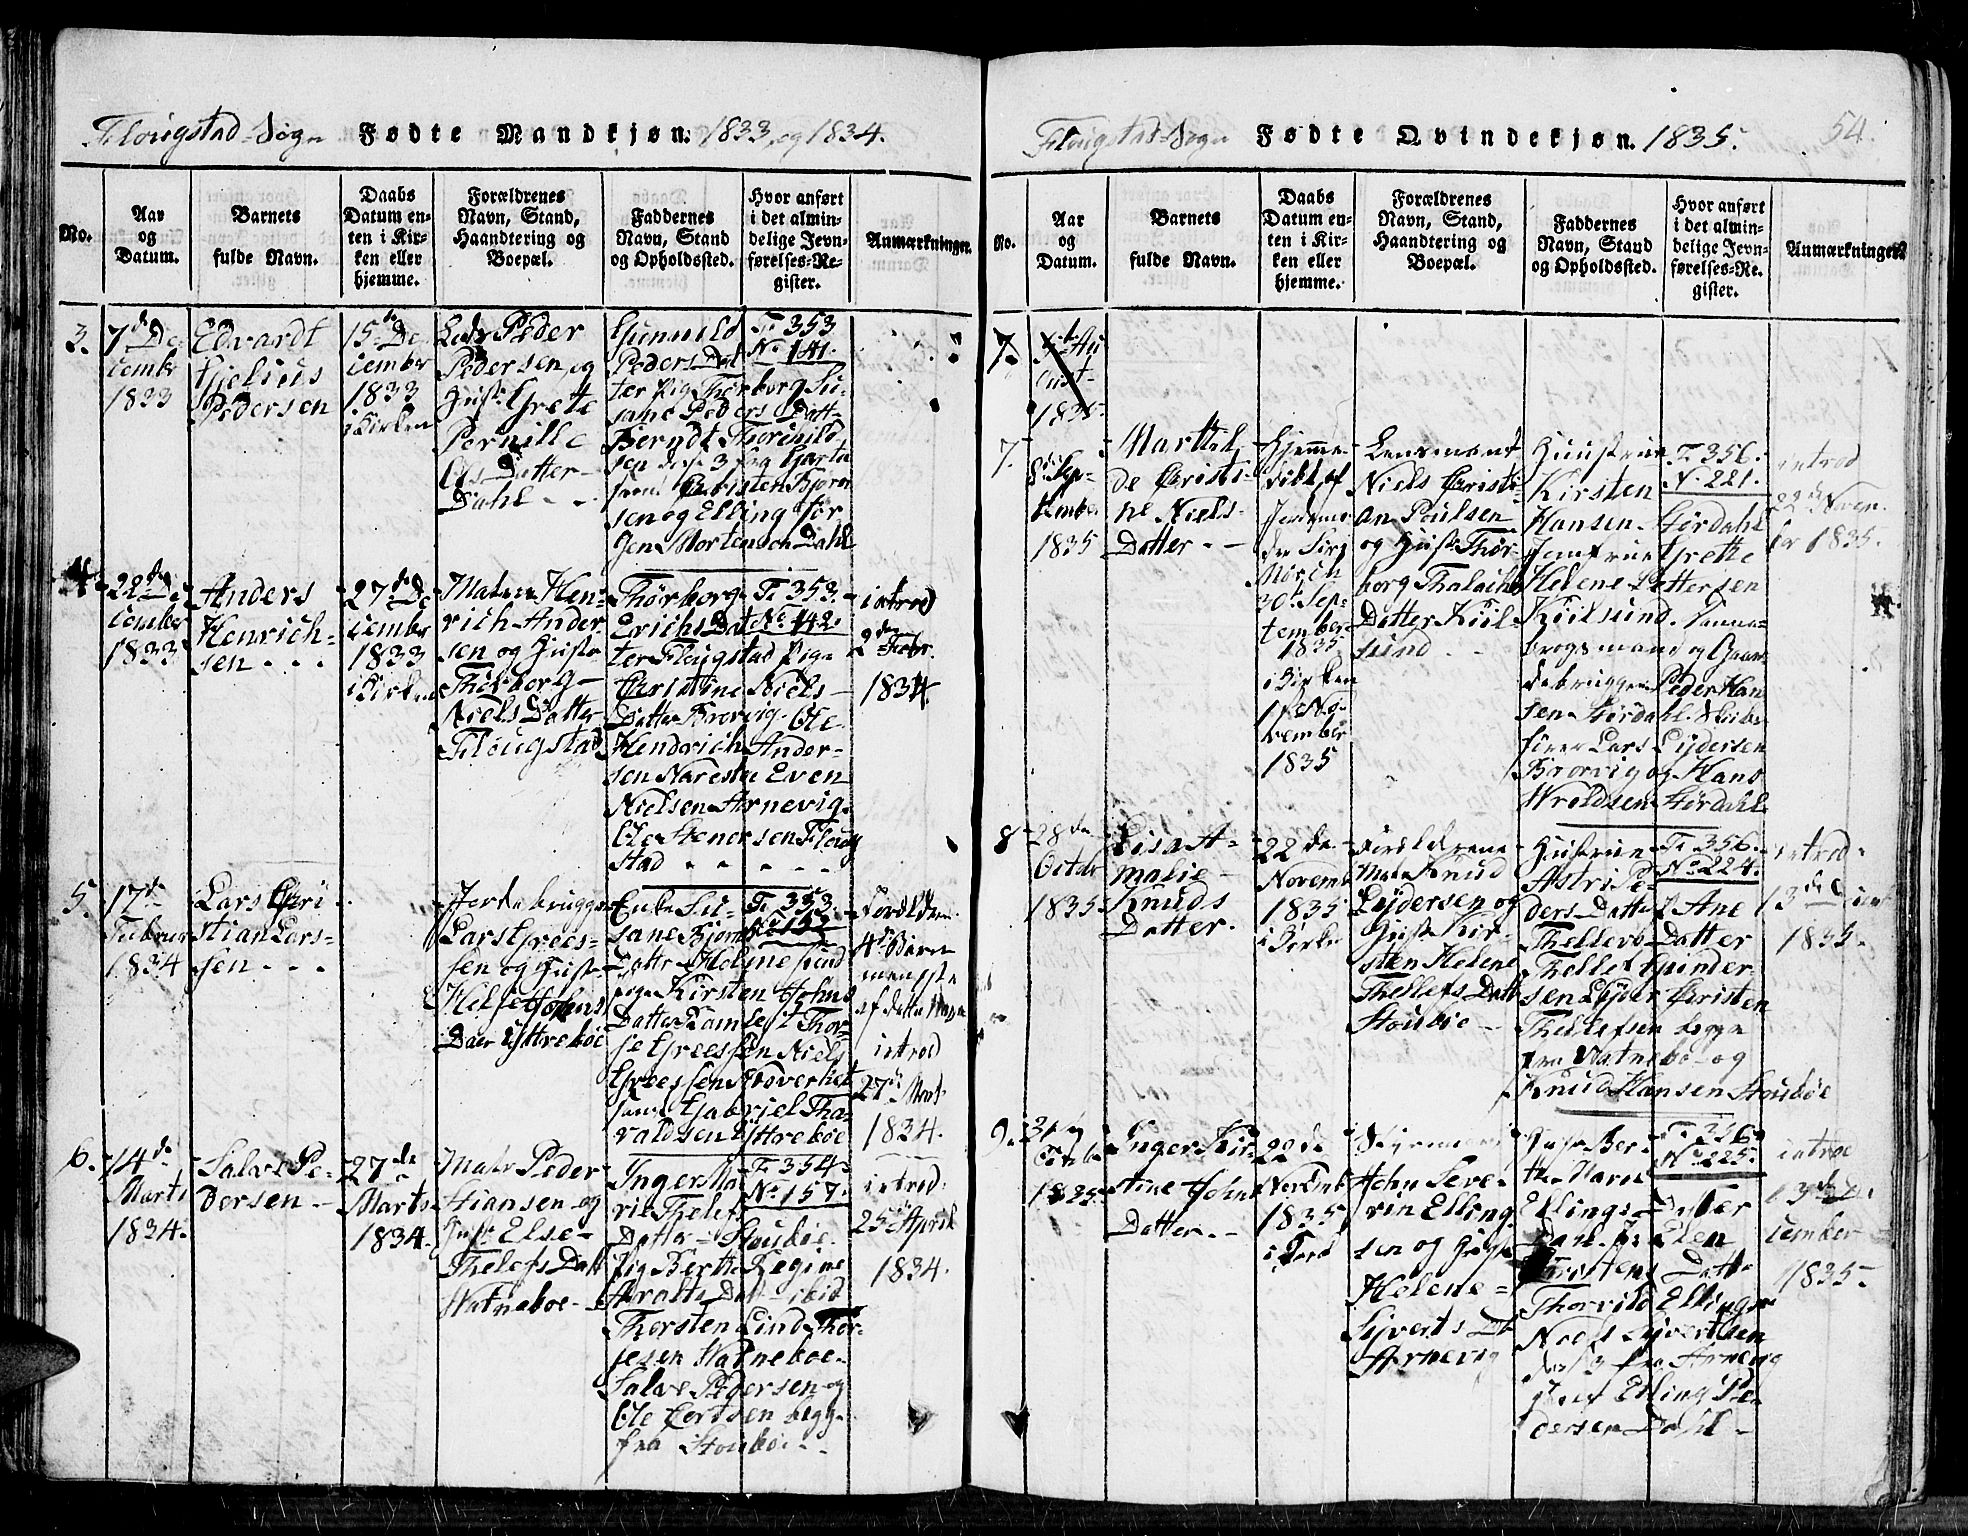 Flougstad-Sogn Fødte Mandkjøn. 1833, og 1834.
No.
Aar
og
Datum.
Barnets
fulde Navn.
Daabs
Datum en-
ten i Kir-
ken eller
hjemme.
Forældrenes
Navn, Stand,
Haandtering og
Boepæl.
Faddernes
Navn, Stand
og Opholdssted.
Hvor anført
i det almin-
delige Jevn-
førelses-Re-
gister.
Anmærkninger.
3.
7de De
cembr
1833
Edvardt
Gjelsius
Pedersen
15de De
cember
1833
i Kirken
Peder
Pedersen, og
Hustr Grete
Pernille
Ols Datter
Dahl
Gunnild
Peders Dat
ter Pig Thorborg Su-
sane Peders Datt-
Berndt Thorkild
sen disse 3 fog Garta
samt Christen Bjørn
sen og Elling Jør
gen Mortensen Dahl
Fr 353
No 141.
4
22de De
cember
1833
Anders
Henrich-
sen
27de De
cember
1833
i Kirken
Matr Hen-
rich Ander-
sen og Hustr
Thorborg
Niels Datter
Flougstad
Thorborg
Erichs Dat
ter Flougstad Pige
Christine Niels-
Datter Brovig. Ole
Hendrich Ander-
sen Narestø Even
Nielsen Arnevig
Ole Stenersen Floug
stad
Fr 353.
No 142.
introd
2den Febr.
1834.
5.
17de
Februar
1834
Lars Chri
stian Lars-
sen
Jordebrugger
Lars Grees-
sen og Hustr
Helje Johns
Dater Yttrebøe
Enke Su-
sane Bjørns
Datter Holmesund
pige Kirsten Johns
Datter Ramse Thor-
se Greessen Niels
Greessen Noverket
samt Gabriel Tha-
raldsen Yttrebøe
Fr 353.
No 152
Foreldrenes
4de Barn
mengste
af dette Navn
introd
27de Mart
1834.
6.
14de
Marts
1834.
Salve Pe-
dersen
27de
Marts
1834.
Matr Peder
Stiansen og
Hustr Else
Thelefs Datt
Vatnebøe
Inger Ma
rie Thelefs
Datter Stoubøe
Pig Berthe Regine
Aralts Datt ibid
Thorsten Lind Thor-
jesen Vatnebøe
Salve Pedersen og
Ole Cordsen begge
fra Stoubøe
Fr 354.
No 157.
introd.
25de April
1834.
Flougstad-Sogn Fødte Qvindekjøn. 1835. 54.
No.
Aar
og
Datum.
Barnets
fulde Navn.
Daabs
Datum en-
ten i Kir-
ken eller
hjemme.
Forældrenes
Navn, Stand,
Haandtering og
Boepæl.
Faddernes
Navn, Stand
og Opholdssted.
Hvor anført
i det almin-
delige Jevn-
førelses-Re-
gister.
Anmærkninger.
7.
Au
gust
1835.
7.
8de Sep-
tember
1835
Marthil
de Christi-
ne Niels-
Datter
Hjemme
døbt af
Jordmo-
der
30te Sep-
tember
1835
i Kirken
1ste No-
vember
1835
Lensmand
Niels Christi-
an Poulsen
og Hustr Thor-
borg Thalachs
Datter Kiil-
sund
Hustrue
Kirsten
Hansen Størdahl
Jomfrue Grethe
Helene Pettersen
Kiilsund. Danne-
brogsmand og Gaar-
debrugger Peder Han
sen Størdahl. Skibs
fører Lars Lydersen
Brovig og Hans
Wroldsen Størdahl
Fr 356.
No 221.
introd
22de Novem-
ber 1835.
8
28de
Octobr
1835
Lisa A-
malie
Knuds
Datter.
22de
Novemb
1835
i Kirke
Foreldrene
Matr Knud
Lydersen og
Hustr Kir-
sten Helene
Thellefs Datt
Stoubøe
Hustrue
Astri Pe-
ders Datter Ane
Thellefs Datter
Thellef Gunder-
sen Lyder Christen
Thellefsen begge
fra Vatnebø og
Knud Hansen Stoubøe
Fr 356.
No 224.
introd
13de Decemb
1835.
9.
31
Octobr
1835
Inger Kir-
stine Johns
Datter.
22de
Novemb
1835
i Kirke
John Seve-
rin Elling
sen og Hustr
Helene
Syverts Dt
Arnevig
Hustr Ber-
the Maren
Ellings Datter
Elen
Torstens Datter
Thorvild Ellings
Niels Syvertsen
disse 3 fra Arnevig
Elling Pe
dersen Dahl
Fr 356
No 225.
introd
13de De
cember
1835